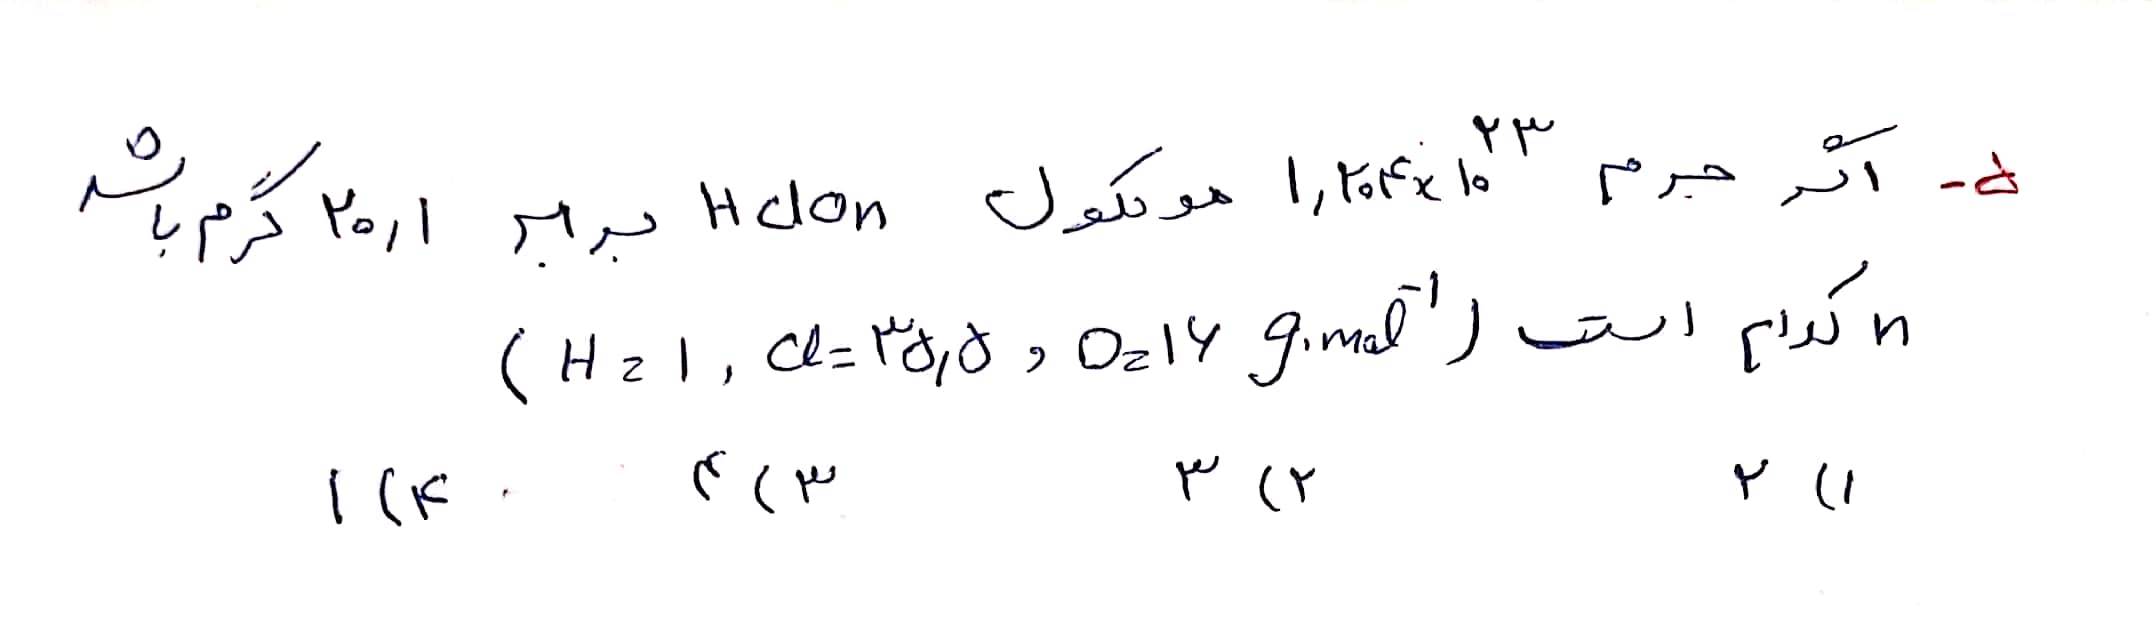 ۵- اگر جرم ۱,۲۰۴×۱۰^۲۳ مولکول HClOn برابر ۲۰,۱ گرم باشد
n کدام است (H=1, Cl=۳۵,۵, O=۱۶ g.mol^-1)
۱) ۲ ۲) ۳ ۳) ۴ ۴) ۱